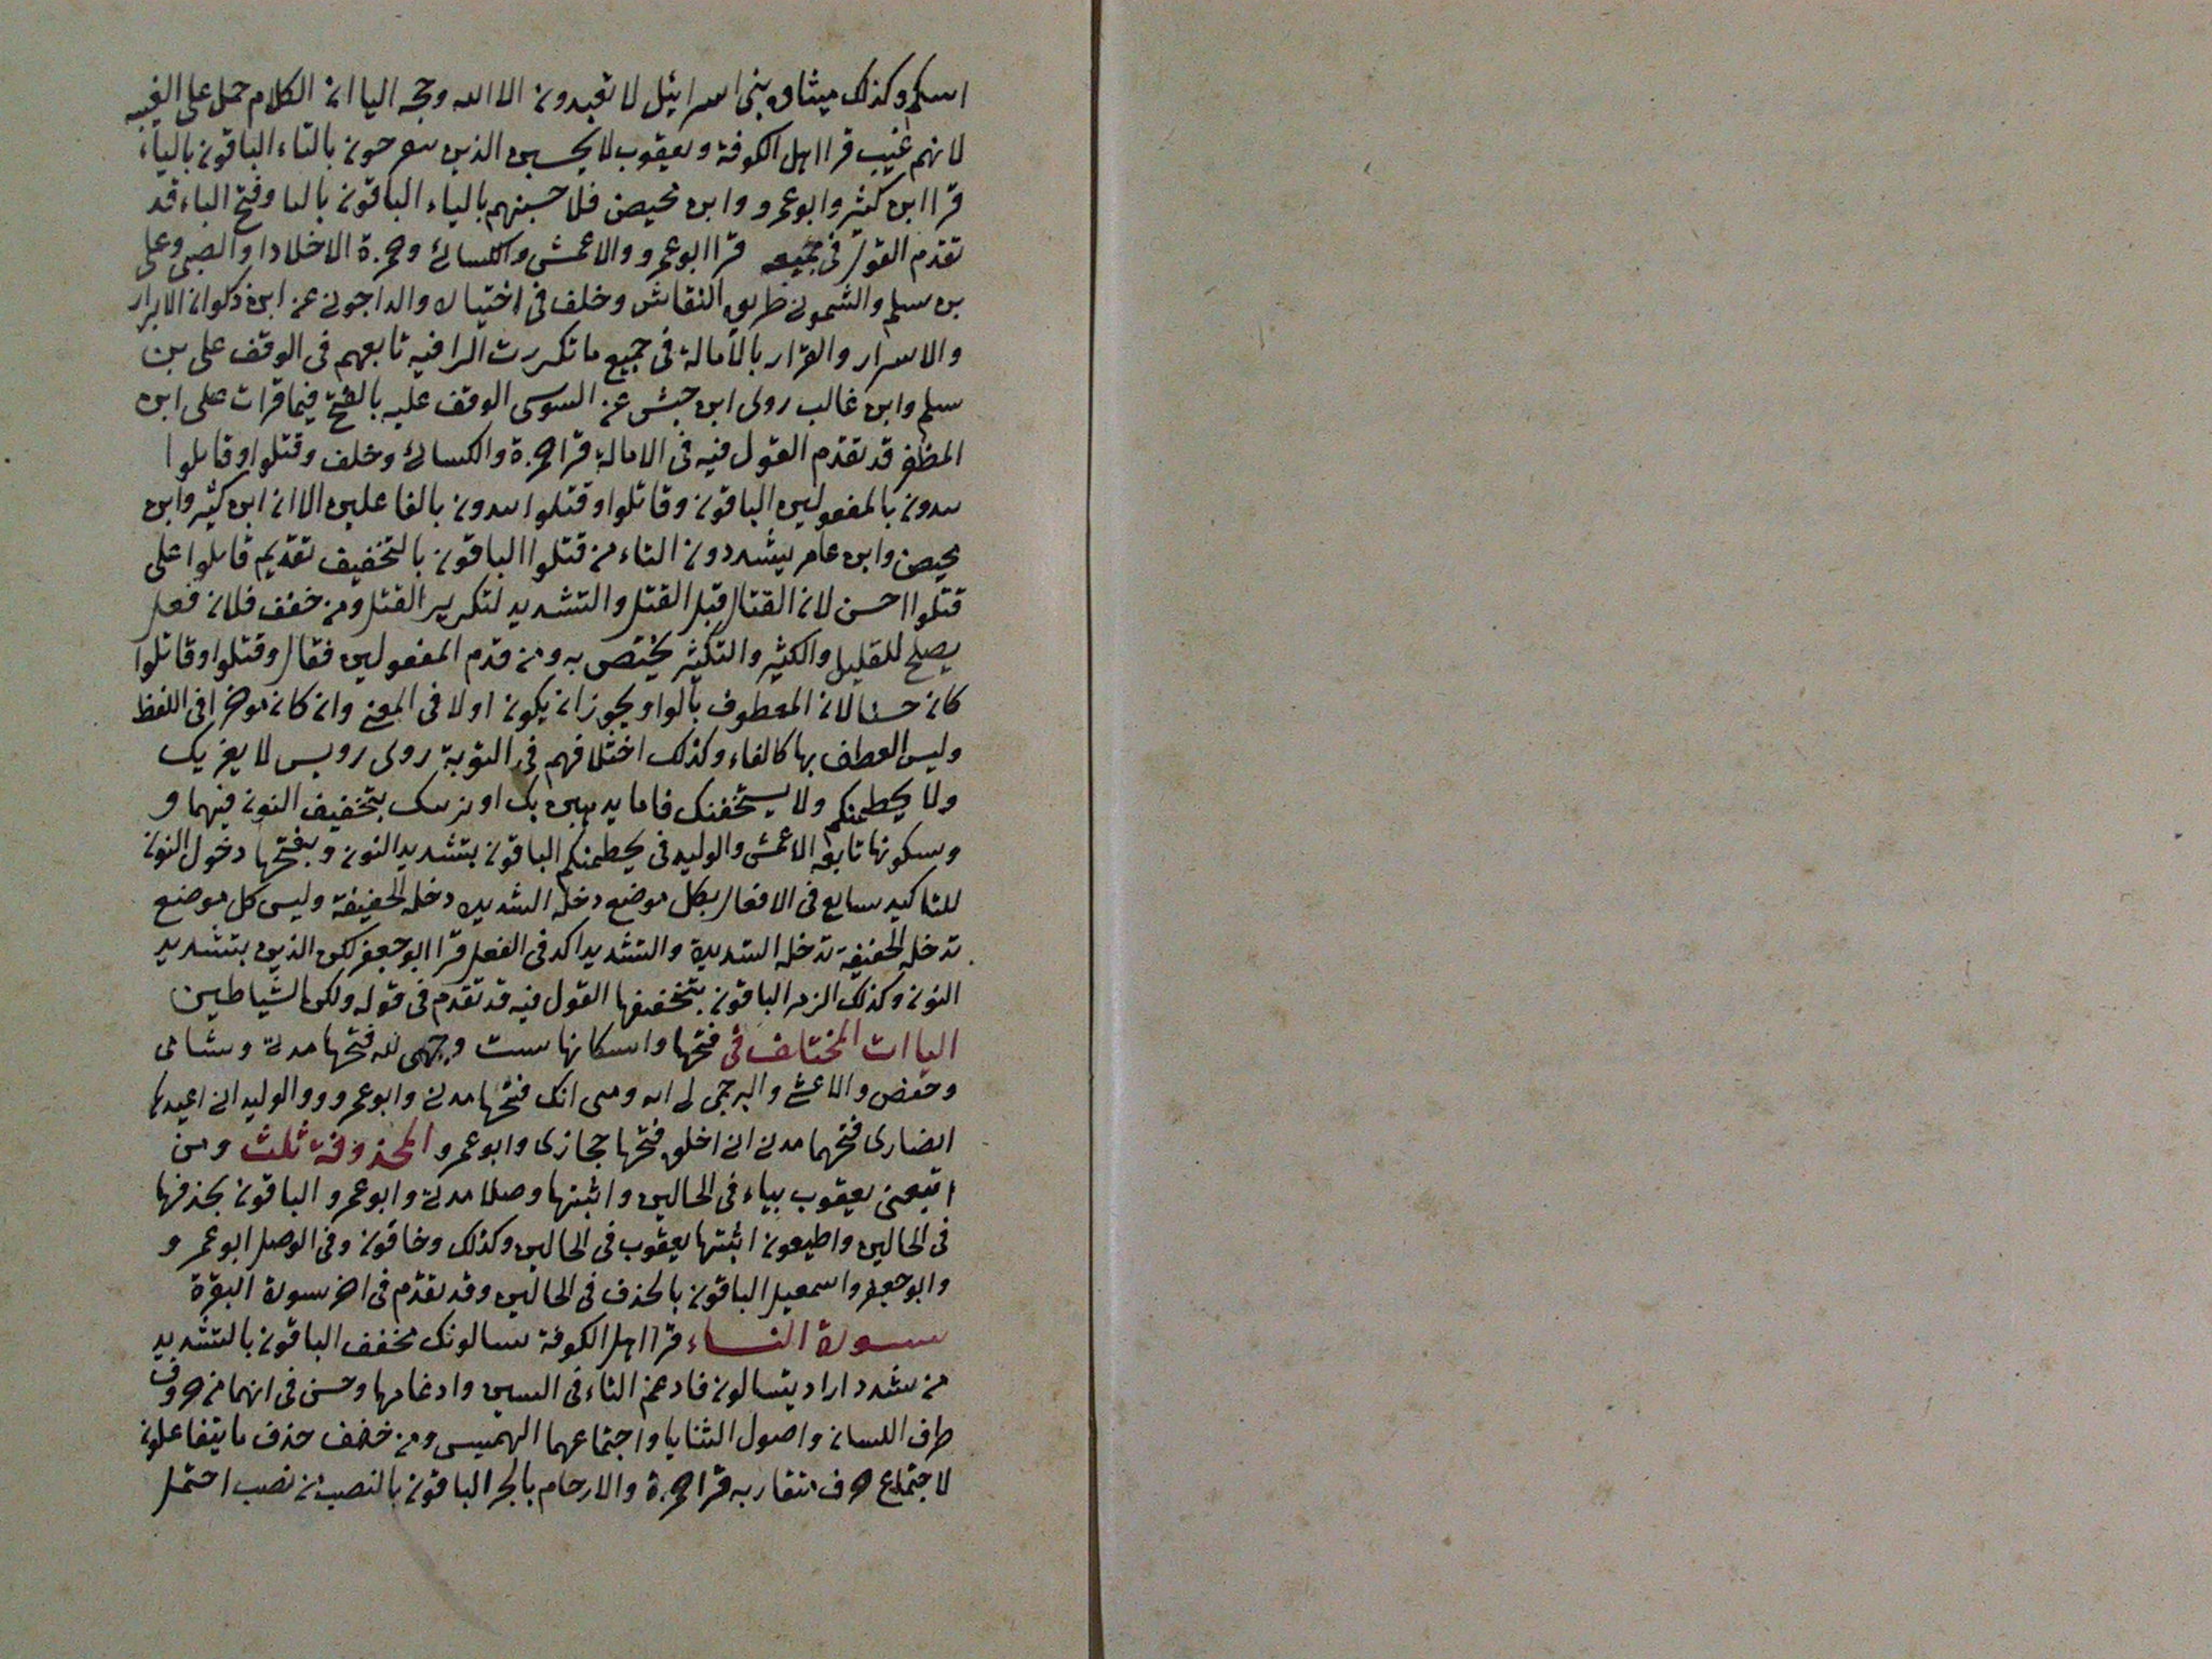 اسلم وكذلك ميثاق بني اسرائيل لا تعبدون الا الله وحجه اليا ان الكلام حمل على الغيبه
لانهم غيب قرا اهل الكوفة ويعقوب لا يحسبن الذين يفرحون بالتاء الباقون بالياء
قرا ابن كثير وابو عمرو وابن محيصن فلا حسبنهم بالياء الباقون بالتا وفتح الباء قد
تقدم القول في جميعه قرا ابو عمرو والاعمش والكسائي وحمزة الا خلادا والضبي وعلى
بن سلم والشموني طريق النقاش وخلف في اختياره والداجوني عن ابن ذكوان الابرار
والاسرار والقرار بالامالة في جميع ما تكررت الرا فيه تابعهم في الوقف على بن
سلم وابن غالب روى ابن حبش عن السوسي الوقف عليه بالفتح فيما قرات على ابن
المظفر قد تقدم القول فيه في الامالة قرا حمزة والكسائي وخلف وقتلوا وقاتلوا
يبدون بالمفعولين الباقون وقاتلوا وقتلوا يبدون بالفاعلين الا ان ابن كثير وابن
محيصن وابن عامر يشددون التاء من قتلوا الباقون بالتخفيف تقديم قاتلوا على
قتلوا احسن لان القتال قبل القتل والتشديد لتكرير القتل ومن خفف فلان فعل
يصلح للقليل والكثير والتكثير يختص به ومن قدم المفعولين فقال وقتلوا وقاتلوا
كان حسنا لان المعطوف بالواو يجوز ان يكون اولا في المعنى وان كان موخرا في اللفظ
وليس العطف بها كالفاء وكذلك اختلافهم في التوبة روى رويس لا يغرنك
ولا يحطمنكم ولا يستخفنك فاما يذهبن بك او نرينك بتخفيف النون فيهما و
وسكونها تابعه الاعمش والوليد في يحطمنكم الباقون بتشديد النون وبفتحها دخول النون
للتاكيد سايع في الافعال بكل موضع دخله الشديده دخله الخفيفة وليس كل موضع
تدخله الخفيفة تدخله الشديدة والتشديد اكد في الفعل قرا ابو جعفر لكن الذين بتشديد
النون وكذلك الزمر الباقون بتخفيفها القول فيه قد تقدم في قوله ولكن الشياطين
الياات المختلف في فتحها واسكانها ست وجهي لله فتحها مدني وشامي
وحفص والاعشى والبرجمي لي ايه ومني انك فتحها مدني وابو عمرو والوليد اني اعيدها
انصارى فتحهما مدني اني اخلق فتحها حجازى وابو عمرو المحذوفة ثلث ومن
اتبعنى يعقوب بياء في الحالين واثبتها وصلا مدني وابو عمرو الباقون بحذفها
في الحالين واطيعون اثبتها يعقوب في الحالين وكذلك وخافون وفي الوصل ابو عمر و
وابو جعفر واسمعيل الباقون بالحذف في الحالين وقد تقدم في اخر سورة البقرة
سورة النساء قرا اهل الكوفة تسالونك مخفف الباقون بالتشديد
من شدد اراد يتسالون فادغم التاء في السين وادغامها وحسن في انهما من حروف
طرف اللسان واصول الثنايا واجتماعهما الهميس ومن خفف حذف ما يتفاعلون
لاجتماع حروف متقاربه قرا حمزة والارحام بالجر الباقون بالنصب من نصب احتمل